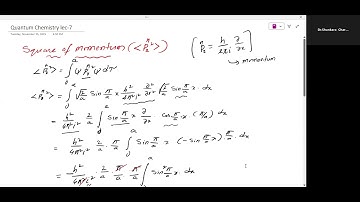 Quantum Chemistry lec-7
Square of momentum (<p̂x²>)
[ p̂x = h/2πi ∂/∂x ]
→ momentum
<p̂x²> = ∫₀ᵃ ψ p̂x² ψ dτ
<p̂x²> = ∫₀ᵃ √(2/a) Sin π/a x h²/4π²i² ∂²/∂x² √(2/a) Sin π/a x . dx
= h²/4π²i² 2/a ∫₀ᵃ Sin π/a x ∂/∂x cos π/a x (π/a) dx
= h²/4π²i² 2/a π/a ∫₀ᵃ Sin π/a x (-Sin π/a x) π/a . dx
= h²/4π²i² 2/a π/a π/a ∫₀ᵃ Sin² π/a x . dx